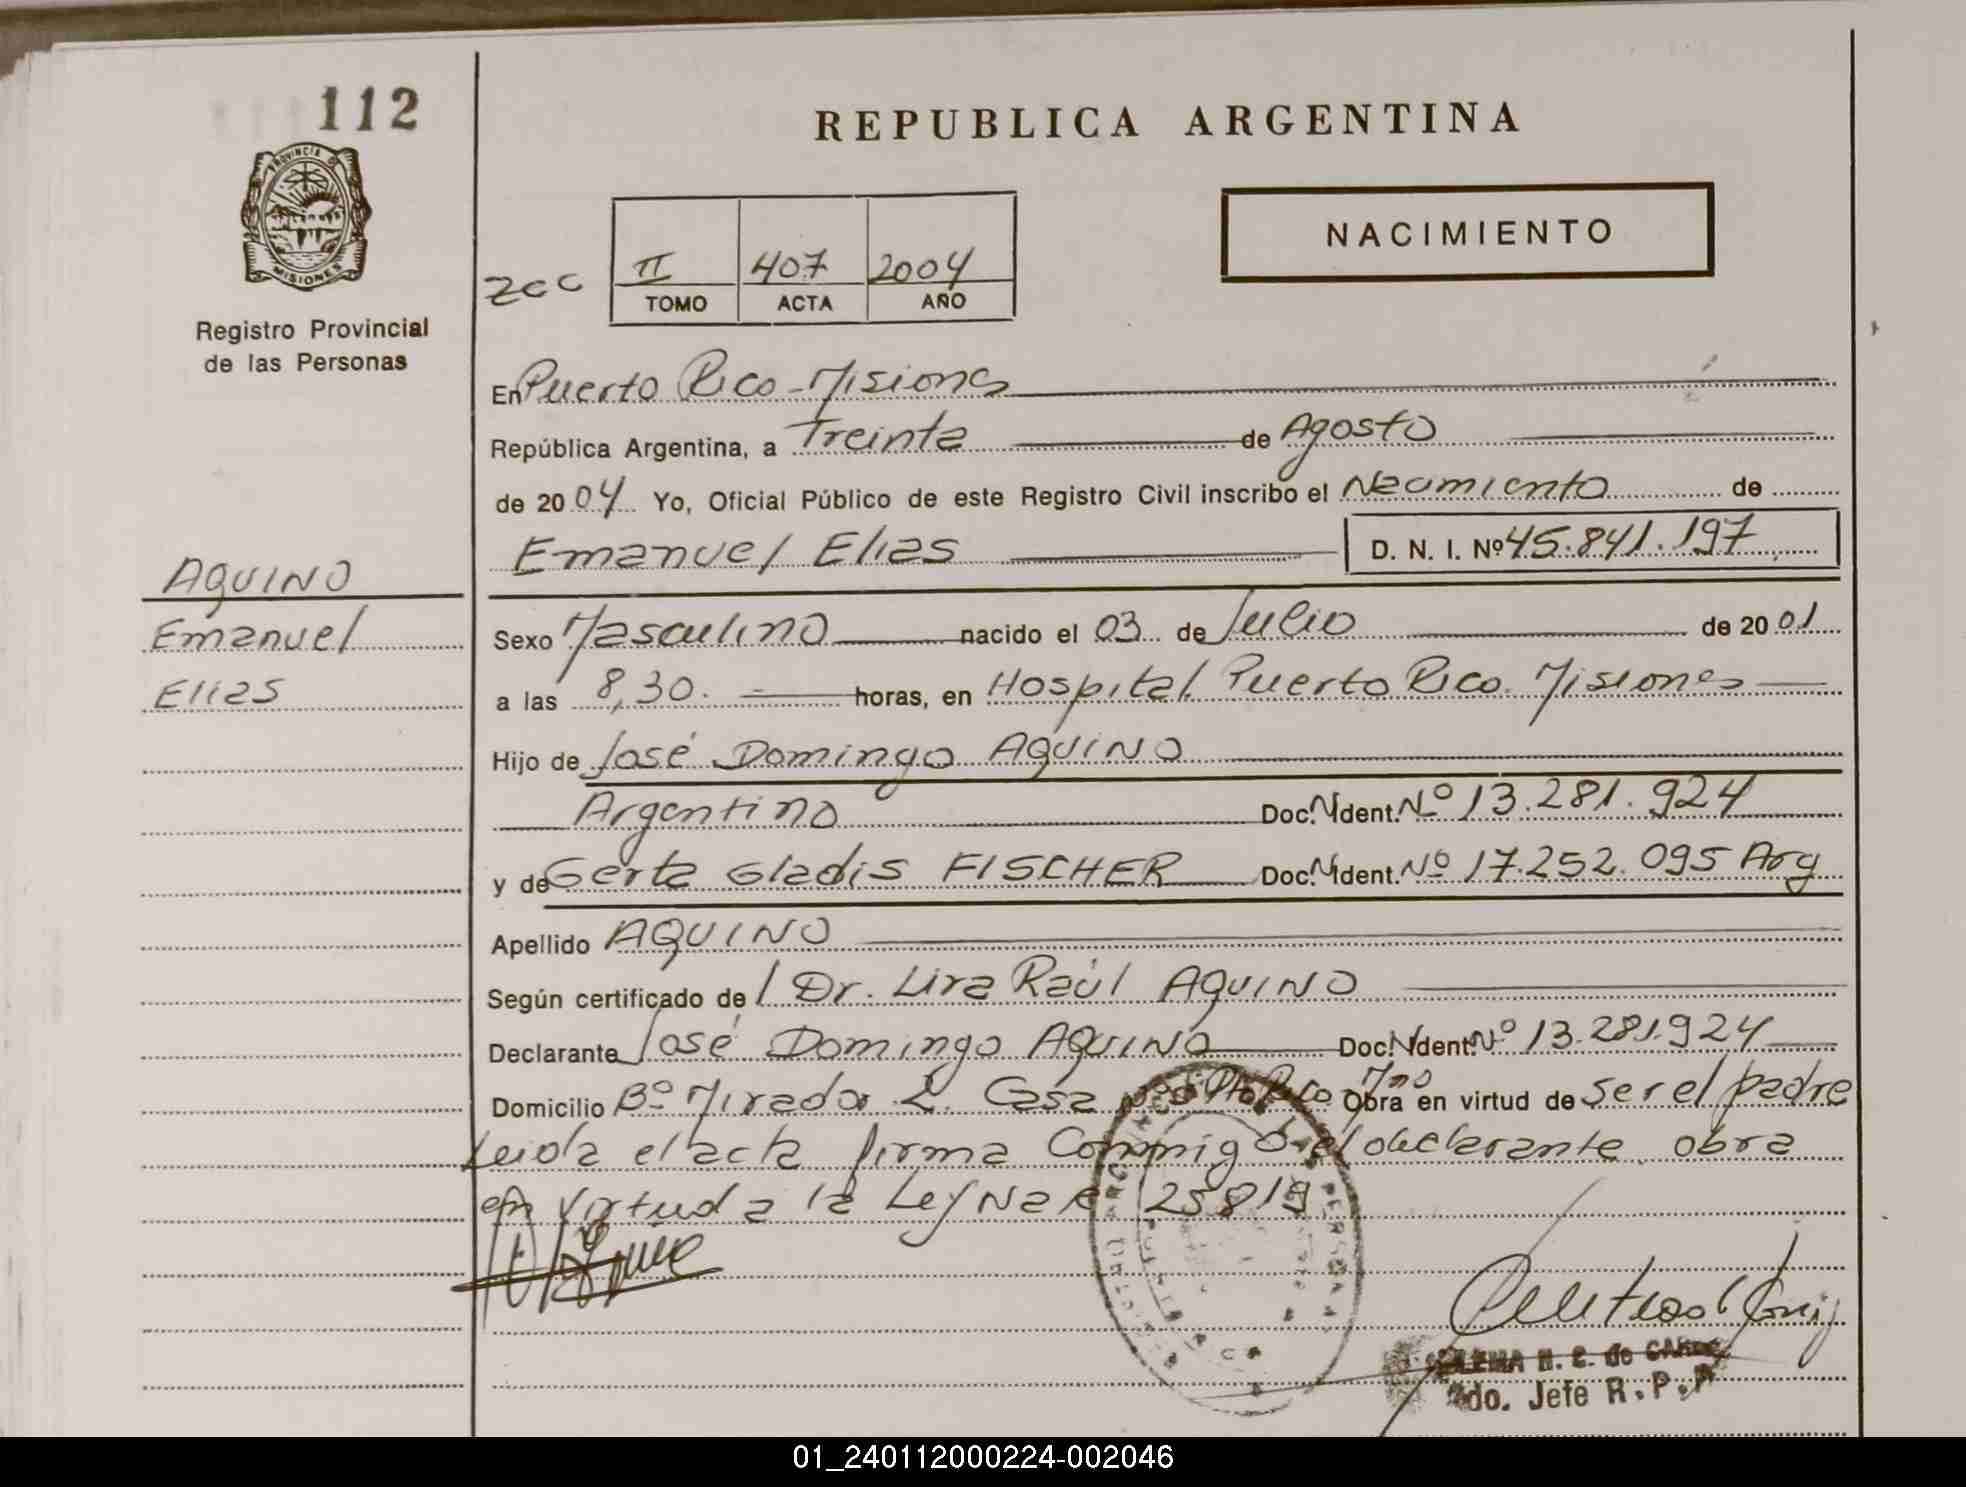 112
REPUBLICA ARGENTINA
PROVINCIA DE
MISIONES
Registro Provincial
de las Personas
NACIMIENTO
II 407 2004
TOMO ACTA AÑO
En Puerto Rico - Misiones
República Argentina, a Treinta de Agosto
de 2004 Yo, Oficial Público de este Registro Civil inscribo el Nacimiento de
Emanuel Elias D. N. I. Nº 45.841.197
AQUINO
Emanuel
Elias
Sexo Masculino nacido el 03 de Julio de 2001
a las 8,30. horas, en Hospital Puerto Rico. Misiones
Hijo de José Domingo AQUINO
Argentino Doc. N Ident. Nº 13.281.924
y de Gerta Gladis FISCHER Doc. N Ident. Nº 17.252.095 Arg
Apellido AQUINO
Según certificado de Dr. Lira Raúl AQUINO
Declarante José Domingo AQUINO Doc. N Ident. Nº 13.281.924
Domicilio Bº Mirador 2. Casa Pto Rico Mnes Obra en virtud de ser el padre
Leida el acta firma Conmigo el declarante obra
en virtud a la Ley Nac 25819
H. E. de
2do. Jefe R.P.P
01_240112000224-002046